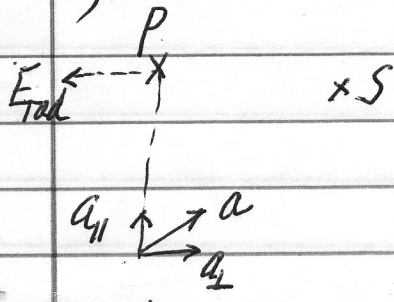 P
E_rad x S
a_∥ a
a_⊥